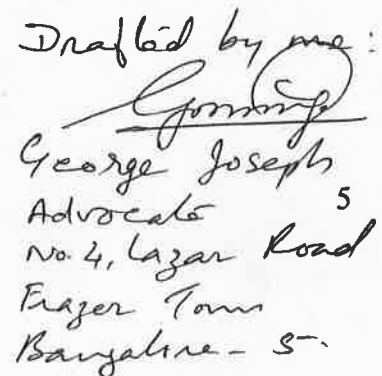 Drafted by me:
George Joseph
Advocate
5
No. 4, Lazar Road
Frazer Town
Bangalore - 5.